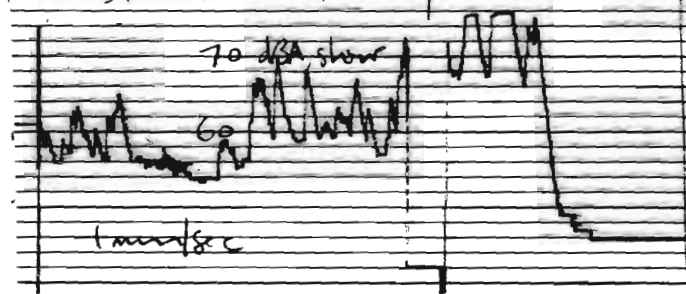 70 dBA slow
60
1 mm/sec